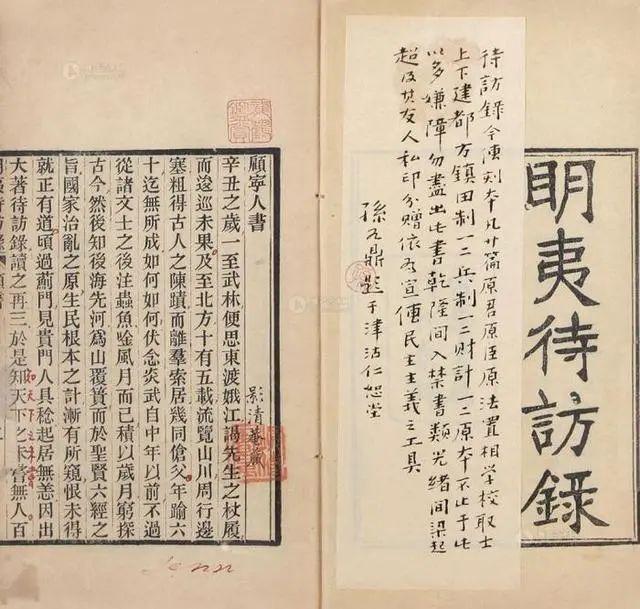 明夷待訪錄
待訪錄今傳刻本凡廿篇原君原臣原法置相學校取士
上下建都方鎮田制一二兵制一二財計一二原本不止于此
以多嫌障勿盡出此書乾隆間入禁書類光緒間梁起
超及其友人私印分贈依為宣傳民主主義之工具
孫九鼎題于津沽仁恕堂
顧寧人書
辛丑之歲一至武林便思東渡娥江謁先生之杖履
而逡巡未果及至北方十有五載流覽山川周行邊
塞粗得古人之陳蹟而離羣索居幾同傖父年踰六
十迄無所成如何如何伏念炎武自中年以前不過
從諸文士之後注蟲魚唫風月而已積以歲月窮探
古今然後知後海先河爲山覆簣而於聖賢六經之
旨國家治亂之原生民根本之計漸有所窺恨未得
就正有道頃過薊門見貴門人具稔起居無恙因出
大著待訪錄讀之再三於是知天下之未嘗無人百